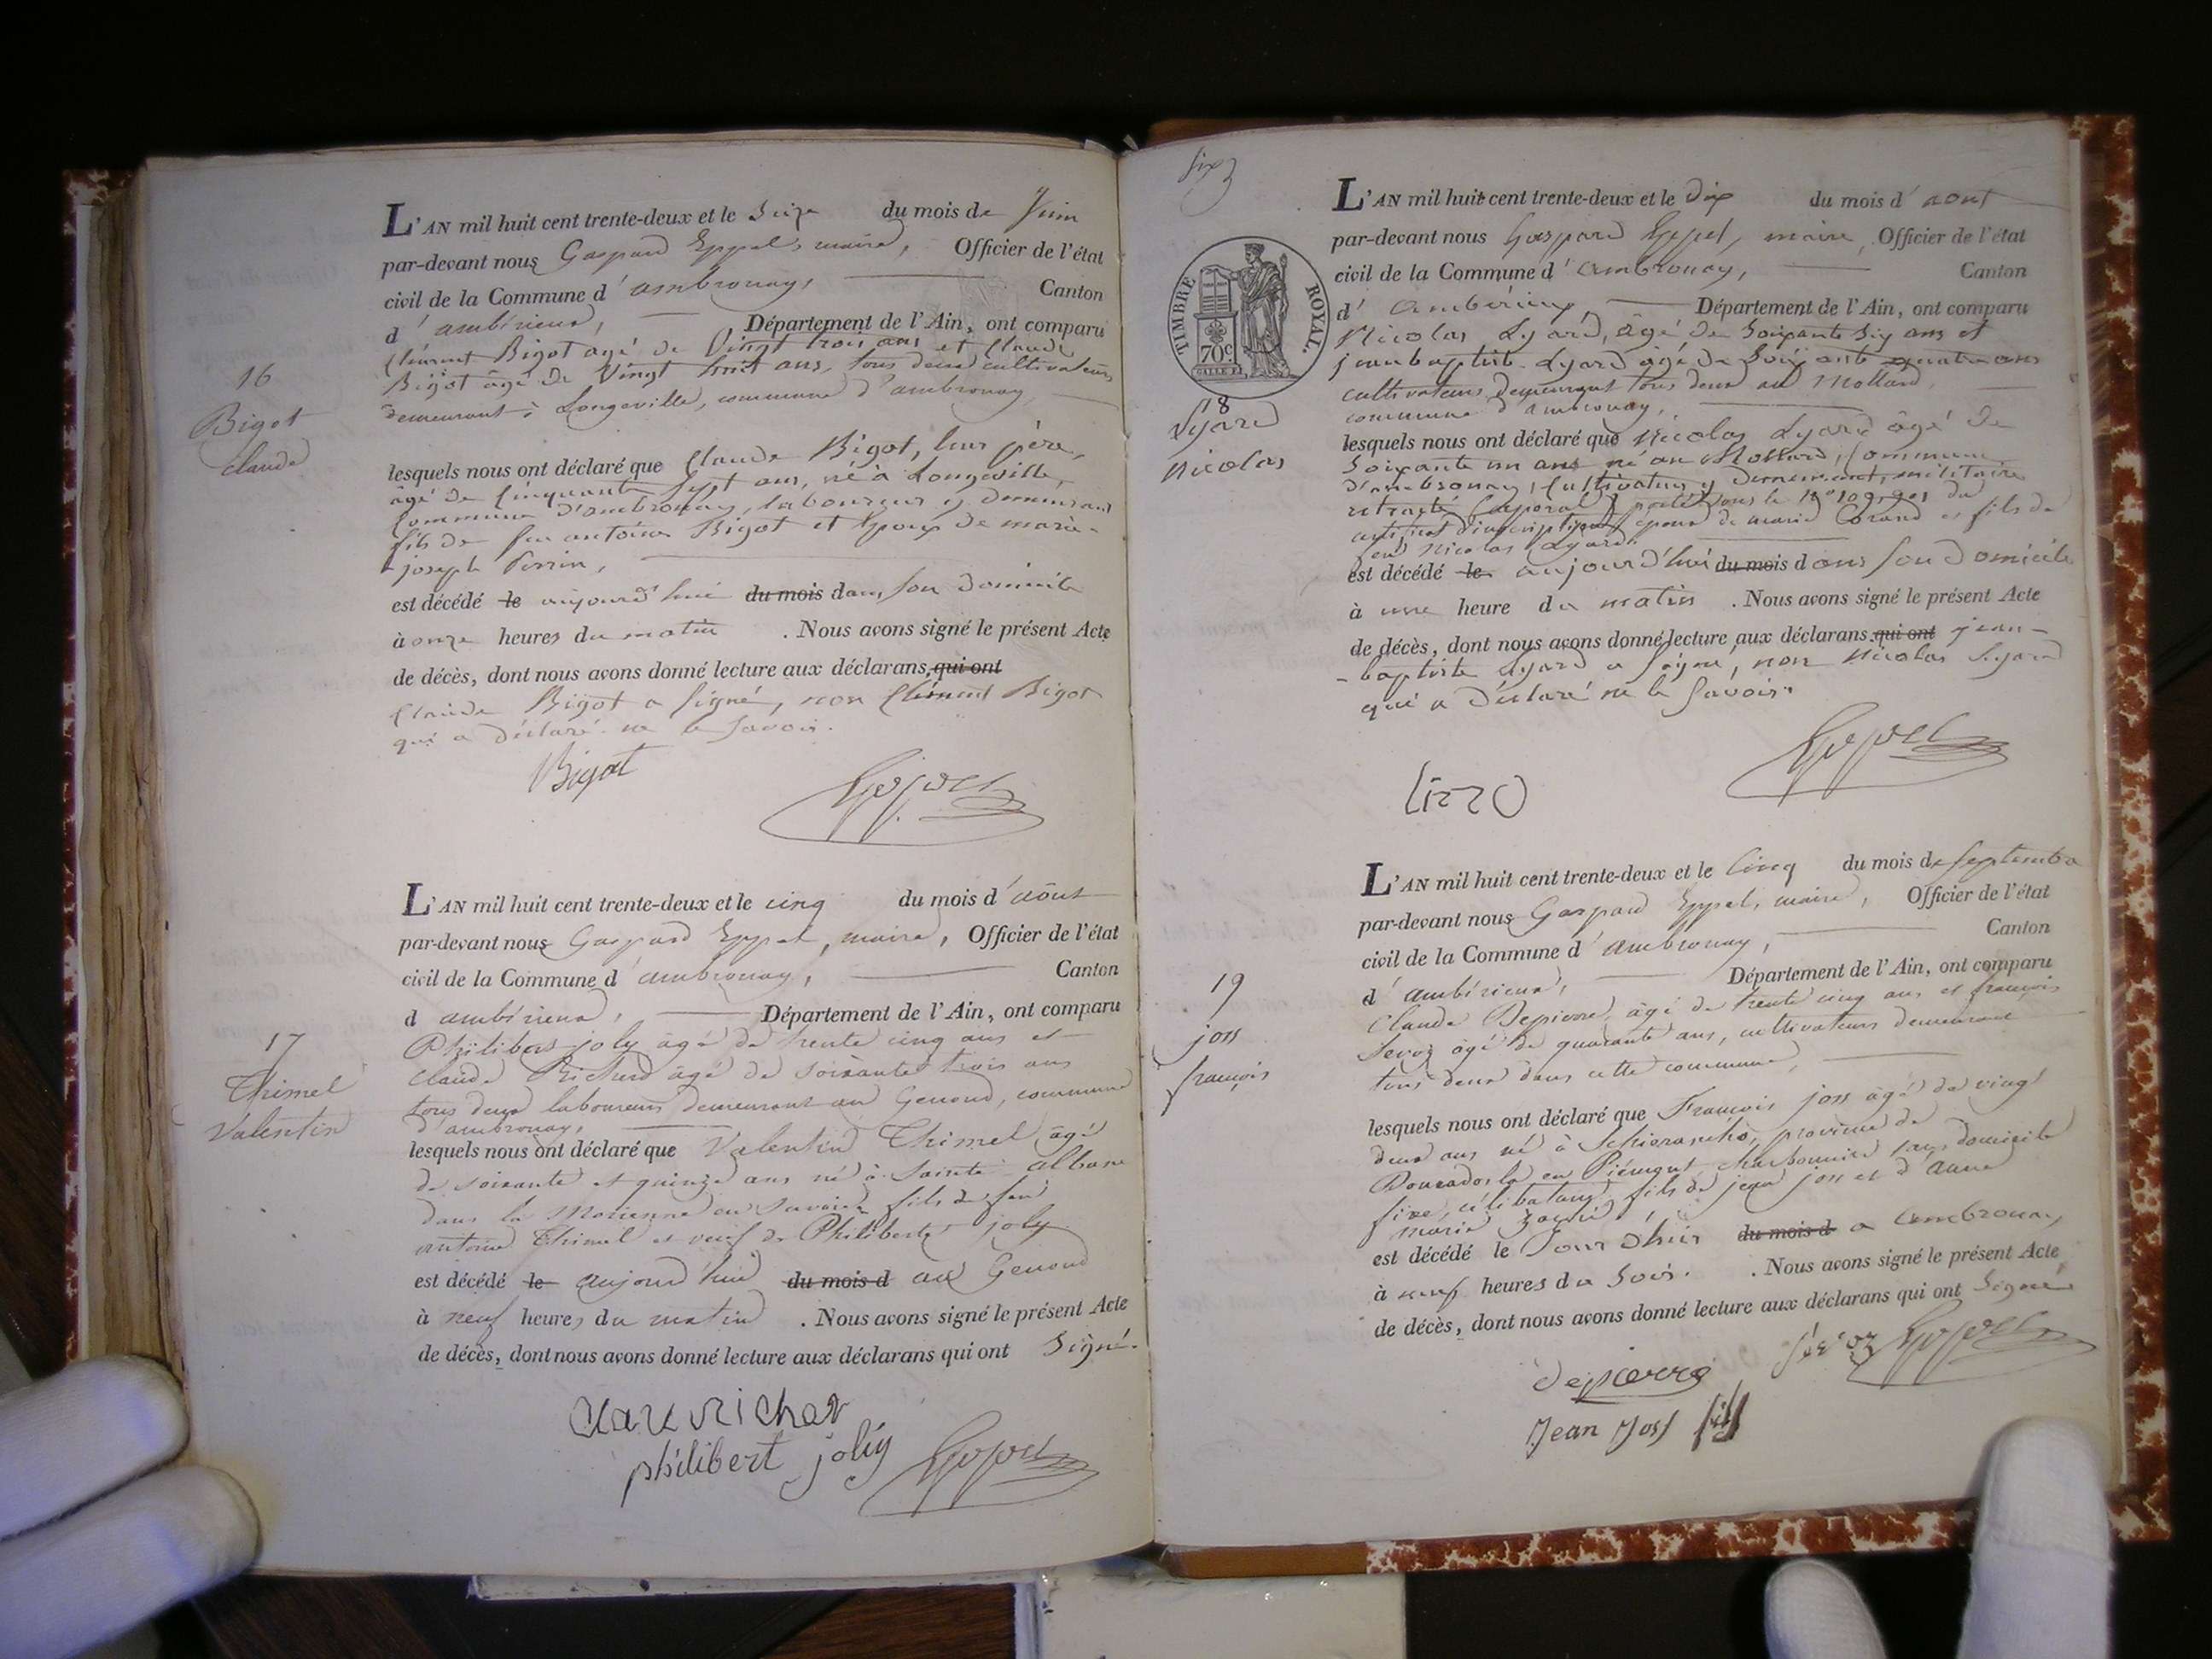 L'AN mil huit cent trente-deux et le Seize du mois de Juin
par-devant nous Gaspard Eppel, maire, Officier de l'état
civil de la Commune d'ambronay, Canton
d'ambérieux, Département de l'Ain, ont comparu
Clément Bigot agé de Vingt trois ans et Claude
Bigot âgé de Vingt huit ans, tous deux cultivateurs
demeurant à Longeville, commune d'ambronay
16
Bigot
claude
lesquels nous ont déclaré que Claude Bigot, leur père,
âgé de Cinquante Sept ans, né à Longeville,
Commune d'ambronay, laboureur y demeurant
fils de feu antoine Bigot et Epoux de marie-
joseph Perrin,
est décédé le aujourd'hui du mois dans son domicile
à onze heures du matin . Nous avons signé le présent Acte
de décès, dont nous avons donné lecture aux déclarans, qui ont
Claude Bigot a signé, non Clément Bigot
qui a déclaré ne le savoir.
Bigot
Eppel
L'AN mil huit cent trente-deux et le cinq du mois d'août
par-devant nous Gaspard Eppel, maire, Officier de l'état
civil de la Commune d'ambronay, Canton
d'ambérieux, Département de l'Ain, ont comparu
Philibert joly âgé de trente cinq ans et
Claude Richerd âgé de soixante trois ans
tous deux laboureurs demeurant au Genoud, commune
d'ambronay,
17
Thimel
Valentin
lesquels nous ont déclaré que Valentin Thimel âgé
de soixante et quinze ans né à Sainte albane
dans la Morienne en Savoie fils de feu
antoine Thimel et veuf de Philiberte joly
est décédé le aujourd'hui du mois d au Genoud
à neuf heures du matin . Nous avons signé le présent Acte
de décès, dont nous avons donné lecture aux déclarans qui ont Signé.
philibert joliy
Eppel
L'AN mil huit cent trente-deux et le Dix du mois d'aout
par-devant nous Gaspard Eppel, maire, Officier de l'état
civil de la Commune d'ambronay, Canton
d'Ambérieux, Département de l'Ain, ont comparu
Nicolas Lyard, âgé de Soixante Six ans et
jean baptiste Lyard âgé de Soixante quatre ans
cultivateurs demeurant tous deux au Mollard,
commune d'ambronay,
TIMBRE ROYAL.
70c
18
Lyard
Nicolas
lesquels nous ont déclaré que Nicolas Lyard âgé de
Soixante un ans né au Mollard, Commune
d'ambronay, Cultivateur y demeurant, militaire
retraité Caporal, porté sous le du
d'inscription, époux de marie et fils de
feu Nicolas Lyard.
est décédé le aujourd'hui du mois dans son domicile
à une heure du matin . Nous avons signé le présent Acte
de décès, dont nous avons donné lecture aux déclarans, qui ont jean-
baptiste Lyard a signé, non Nicolas Lyard
qui a déclaré ne le savoir.
Eppel
L'AN mil huit cent trente-deux et le Cinq du mois de Septembre
par-devant nous Gaspard Eppel, maire, Officier de l'état
civil de la Commune d'ambronay, Canton
d'ambérieux, Département de l'Ain, ont comparu
Claude Depierre, âgé de trente cinq ans et françois
Servoz âgé de quarante ans, cultivateurs demeurant
tous deux dans cette commune,
19
joss
françois
lesquels nous ont déclaré que François joss âgé de vingt
deux ans né à province de
en Piémont charbonnier sans domicile
fixe, célibataire, fils de jean joss et d'anne
marie
est décédé le Jour d'hui du mois d a Ambronay
à neuf heures du Soir. . Nous avons signé le présent Acte
de décès, dont nous avons donné lecture aux déclarans qui ont Signé
depierre
Eppel
Jean Joss